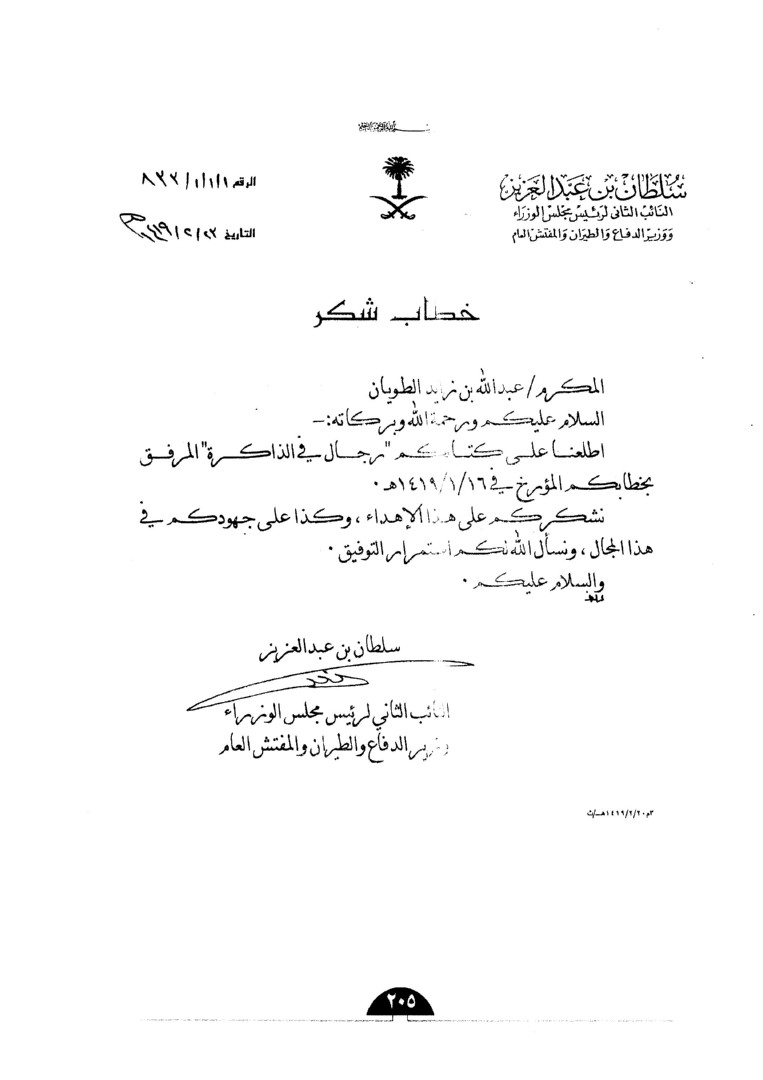 سلطان بن عبد العزيز
النائب الثاني لرئيس مجلس الوزراء
ووزير الدفاع والطيران والمفتش العام
الرقم
التاريخ ١٤١٩/٢/٢٣هـ
خطاب شكر
المكرم / عبدالله بن زايد الطويان
السلام عليكم ورحمة الله وبركاته :–
اطلعنا على كتابكم "رجال في الذاكرة" المرفق
بخطابكم المؤرخ في ١٤١٩/١/١٦هـ .
نشكركم على هذا الإهداء ، وكذا على جهودكم في
هذا المجال ، ونسأل الله لكم استمرار التوفيق .
والسلام عليكم .
سلطان بن عبدالعزيز
النائب الثاني لرئيس مجلس الوزراء
وزير الدفاع والطيران والمفتش العام
٣م١٤١٩/٢/٢٠هـ/ث
٢٠٥